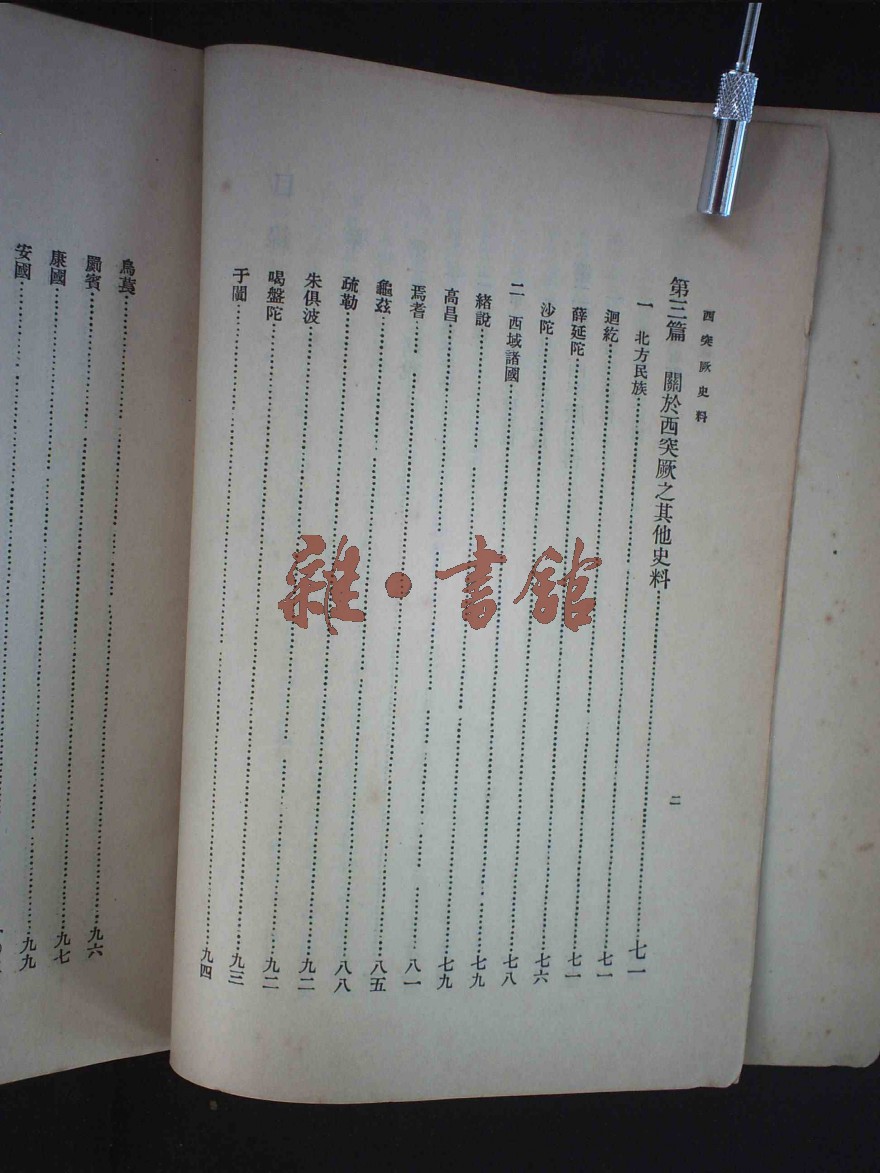 西突厥史料
二
第三篇 關於西突厥之其他史料……七一
一 北方民族……七一
迴紇……七一
薛延陀……七六
沙陀……七八
二 西域諸國……七九
緒說……七九
高昌……八一
焉耆……八五
龜茲……八八
疏勒……九二
朱俱波……九二
喝盤陀……九三
于闐……九四
烏萇……九六
罽賓……九七
康國……九九
安國……
雜·書館